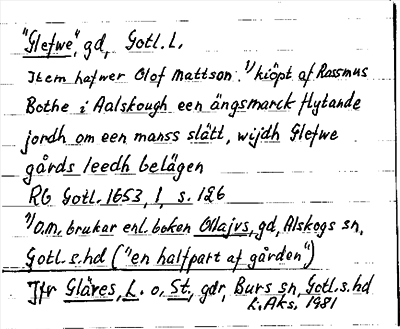 "Glefwe", gd, Gotl. L.
Item hafwer Olof Mattson 1) kiöpt af Rassmus
Bothe i Aalskough een ängsmarck flytande
jordh om een manss slätt, wijdh Glefwe
gårds leedh belägen
RG Gotl. 1653, I, s. 126
1) O.M. brukar enl. boken Ollajvs, gd, Alskogs sn,
Gotl. s. hd ("en halfpart af gården")
Jfr Gläves, L. o. St., gdr, Burs sn, Gotl. s. hd
L. Aks. 1981